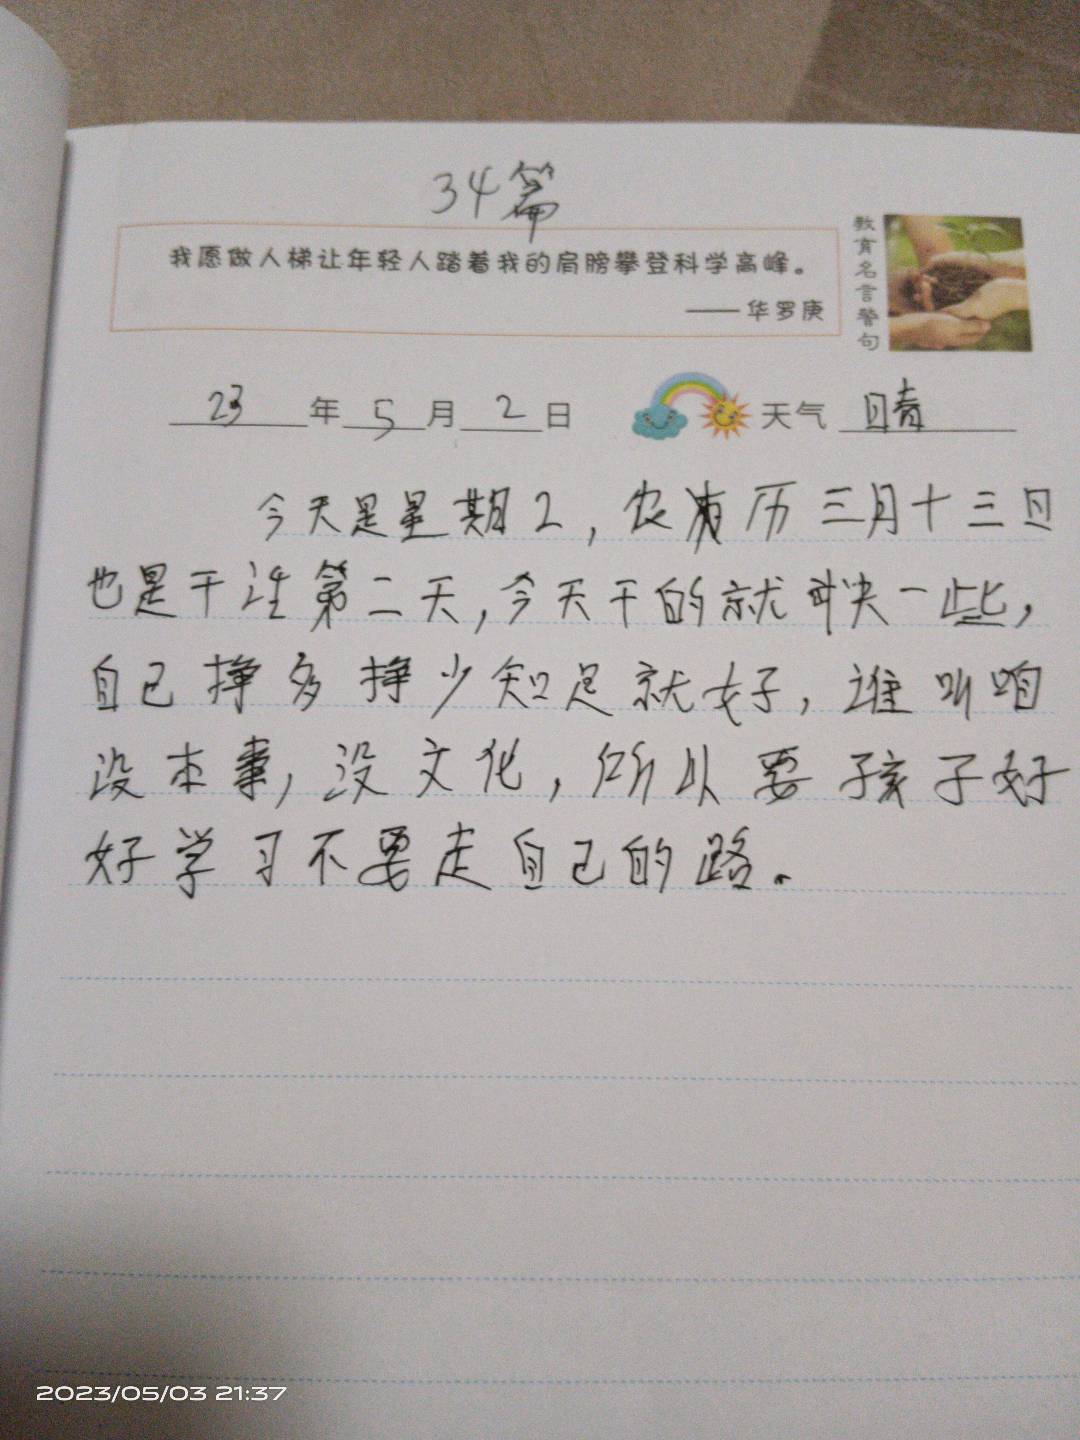 34篇
我愿做人梯让年轻人踏着我的肩膀攀登科学高峰。
——华罗庚
教育名言警句
23年5月2日 天气 晴
今天是星期2,农历三月十三日
也是干活第二天,今天干的就快一些,
自己挣多挣少知足就好,谁叫咱
没本事,没文化,所以要孩子好
好学习不要走自己的路。
2023/05/03 21:37